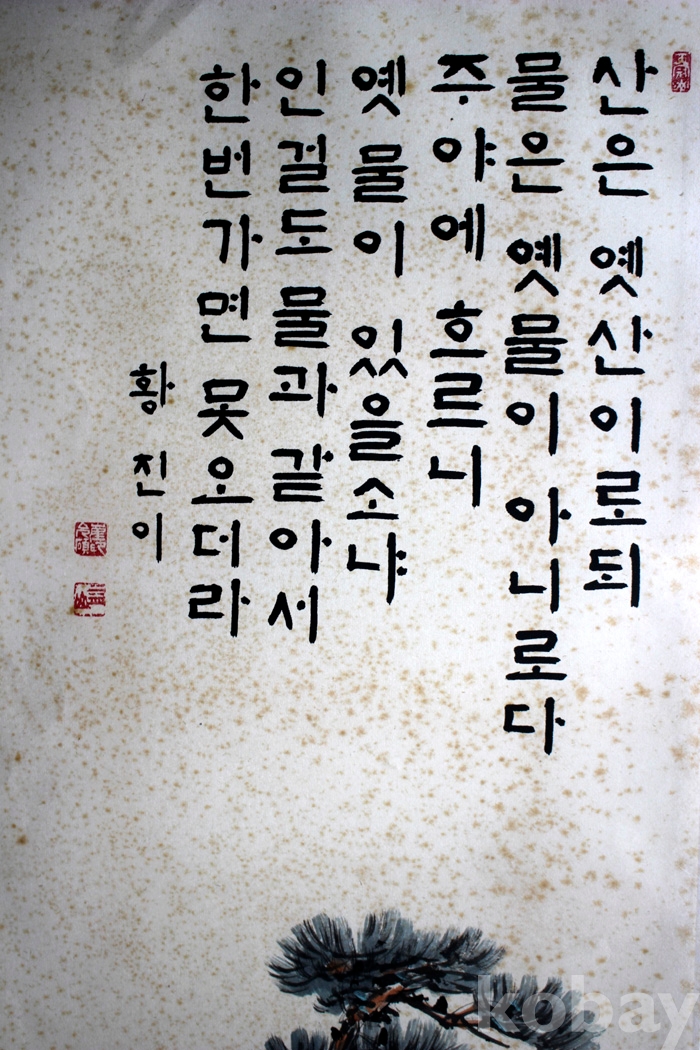 산은 옛산이로되
물은 옛물이 아니로다
주야에 흐르니
옛물이 있을소냐
인걸도 물과 같아서
한번가면 못오더라
황진이
kobay